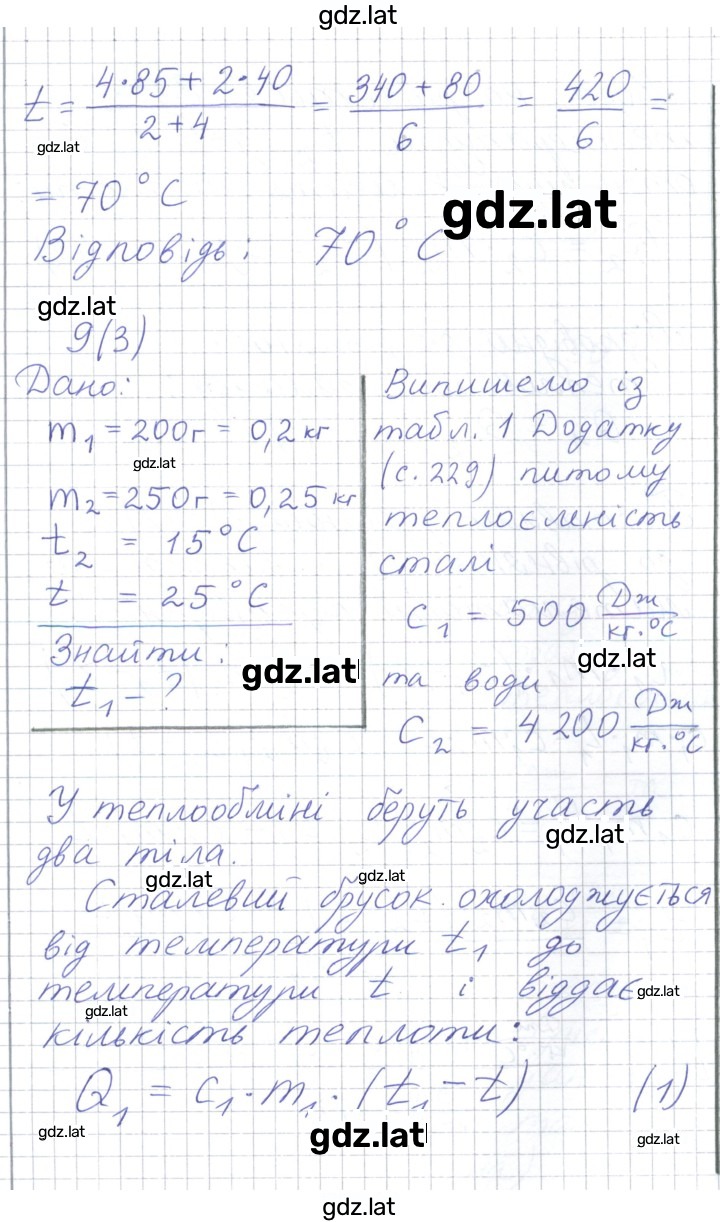 gdz.lat
t = (4·85 + 2·40)/(2+4) = (340 + 80)/6 = 420/6 =
gdz.lat
= 70 °C
gdz.lat
Відповідь: 70 °C
gdz.lat
9(3)
Дано:
m₁ = 200г = 0,2 кг
gdz.lat
m₂ = 250г = 0,25 кг
t₂ = 15 °C
t = 25 °C
Знайти:
gdz.lat
t₁ – ?
Випишемо із
табл. 1 Додатку
(с. 229) питому
теплоємність
сталі
c₁ = 500 Дж/кг·°C
gdz.lat
та води
c₂ = 4 200 Дж/кг·°C
У теплообміні беруть участь
gdz.lat
два тіла.
gdz.lat
gdz.lat
Сталевий брусок охолоджується
від температури t₁ до
температури t і віддає
gdz.lat
gdz.lat
кількість теплоти:
Q₁ = c₁·m₁·(t₁ – t) (1)
gdz.lat
gdz.lat
gdz.lat
gdz.lat